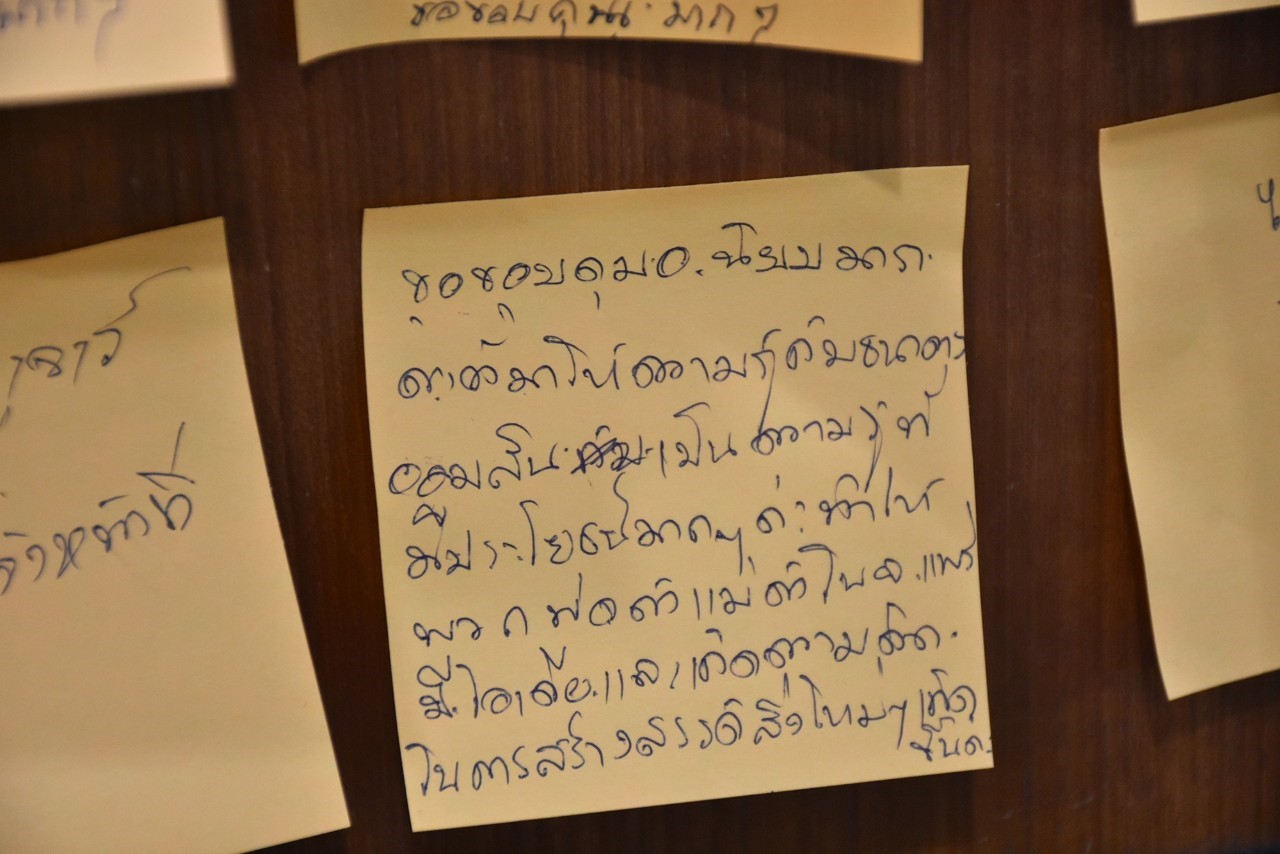 ขอขอบคุณ มาก ๆ
ขอขอบคุณ อ.นิยม มาก
ค่ะที่มาให้ความรู้กับธนาคาร
ออมสิน เป็นความรู้ที่
มีประโยชน์มากๆค่ะ ทำให้
พวกพ่อค้าแม่ค้าใน จ.แพร่
มีไอเดียและเกิดความคิด
ในการสร้างสรรค์สิ่งใหม่ๆ เกิด
ขึ้นค่ะ